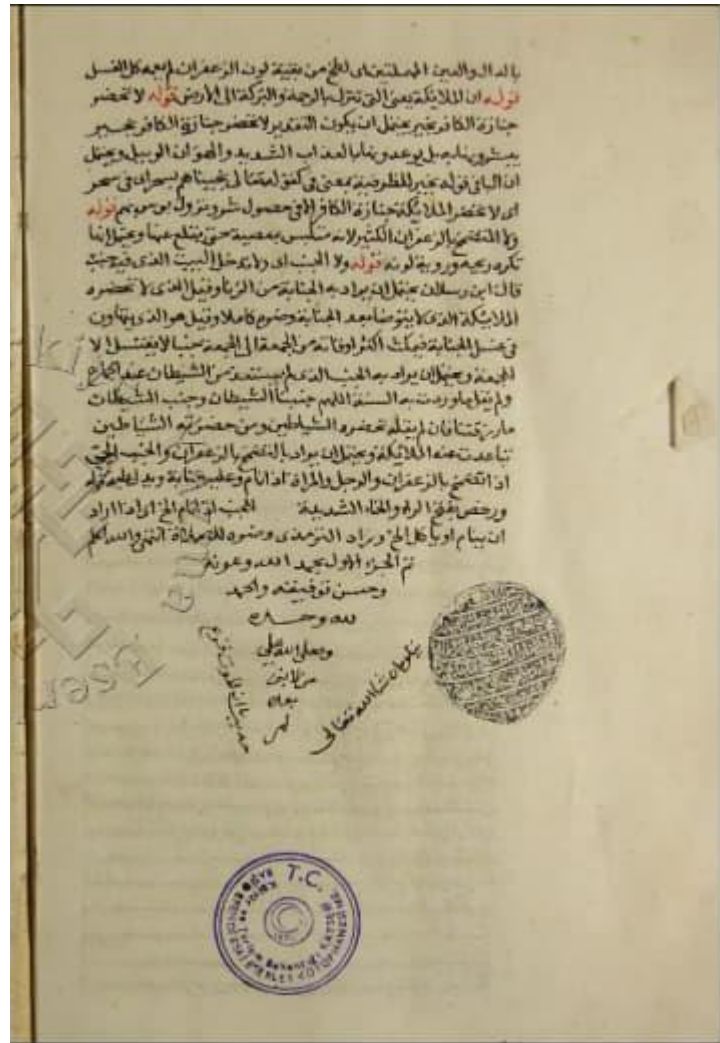 بالدال والعين المهملتين اى لطخ من بقية لون الزعفران لم يعمه كل الغسل
قوله ان الملائكة يعنى التى تنزل بالرحمة والبركة الى الأرض قوله لا تحضر
جنازة الكافر بخير يحتمل ان يكون التقدير لا تحضر جنازة الكافر بخير
يبشرونه به بل يوعدونه بالعذاب الشديد والهوان الوبيل ويحتمل
ان البا فى قوله بخير للظرفية بمعنى فى كقوله تعالى نجيناهم بسحر اى فى سحر
اى لا تحضر الملائكة جنازة الكافر الا فى حصول شر ونزول بوس بهم قوله
ولا المتضمخ بالزعفران الكثير لانه متلبس بمعصية حتى يقلع عنها ويحتمل انها
تكره ريحه وروية لونه قوله ولا الجنب اى ولا تدخل البيت الذى فيه جنب
قال ابن رسلان يحتمل ان يراد به الجنابة من الزنا وقيل الذى لا تحضره
الملائكة الذى لا يتوضا بعد الجنابة وضوء كاملا وقيل هو الذى يتهاون
فى غسل الجنابة فيمكث اكثر اوقاته من الجمعة الى الجمعة جنبا لا يغتسل الا
للجمعة ويحتمل ان يراد به الجنب الذى لم يستعذ من الشيطان عند الجماع
ولم يقل ما وردت به السنة اللهم جنبنا الشيطان وجنب الشيطان
ما رزقتنا فان لم يقله تحضره الشياطين ومن حضرته الشياطين
تباعدت عنه الملائكة ويحتمل ان يراد بالمتضمخ بالزعفران والجنب
اذا تضمخ بالزعفران والرجل والمراة اذا نام وعليه جنابة ويدل عليه قوله
ورخص بفتح الراء والخاء الشديدة للجنب اذا نام الخ اى اذا اراد
ان ينام او ياكل الخ وزاد الترمذى وضوءه للصلاة انتهى والله اعلم
تم الجزء الاول بحمد الله وعونه
وحسن توفيقه والحمد
لله وحده
وصلى الله على
من لا نبى
بعده
ان شاء الله تعالى
T.C.